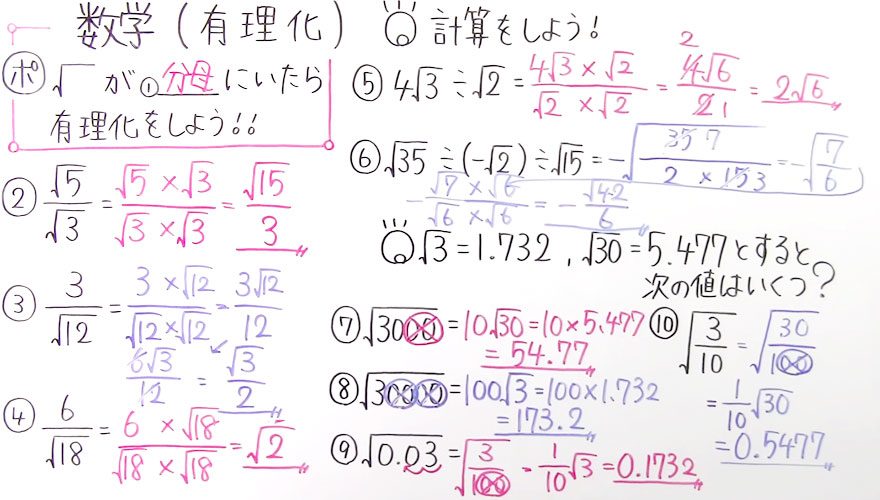 数学(有理化)
ポ √ が①分母にいたら
有理化をしよう!!
② √5/√3 = √5×√3/√3×√3 = √15/3
③ 3/√12 = 3×√12/√12×√12 = 3√12/12
6√3/12 = √3/2
④ 6/√18 = 6×√18/√18×√18 = √2
計算をしよう!
⑤ 4√3÷√2 = 4√3×√2/√2×√2 = 2 4√6/2 1 = 2√6
⑥ √35÷(-√2)÷√15 = -√35 7/2×15 3 = -√7/6
-√7×√6/√6×√6 = -√42/6
√3=1.732, √30=5.477とすると
次の値はいくつ?
⑦ √3000 = 10√30 = 10×5.477
= 54.77
⑧ √30000 = 100√3 = 100×1.732
= 173.2
⑨ √0.03 = √3/100 = 1/10√3 = 0.1732
⑩ √3/10 = √30/100
= 1/10√30
= 0.5477